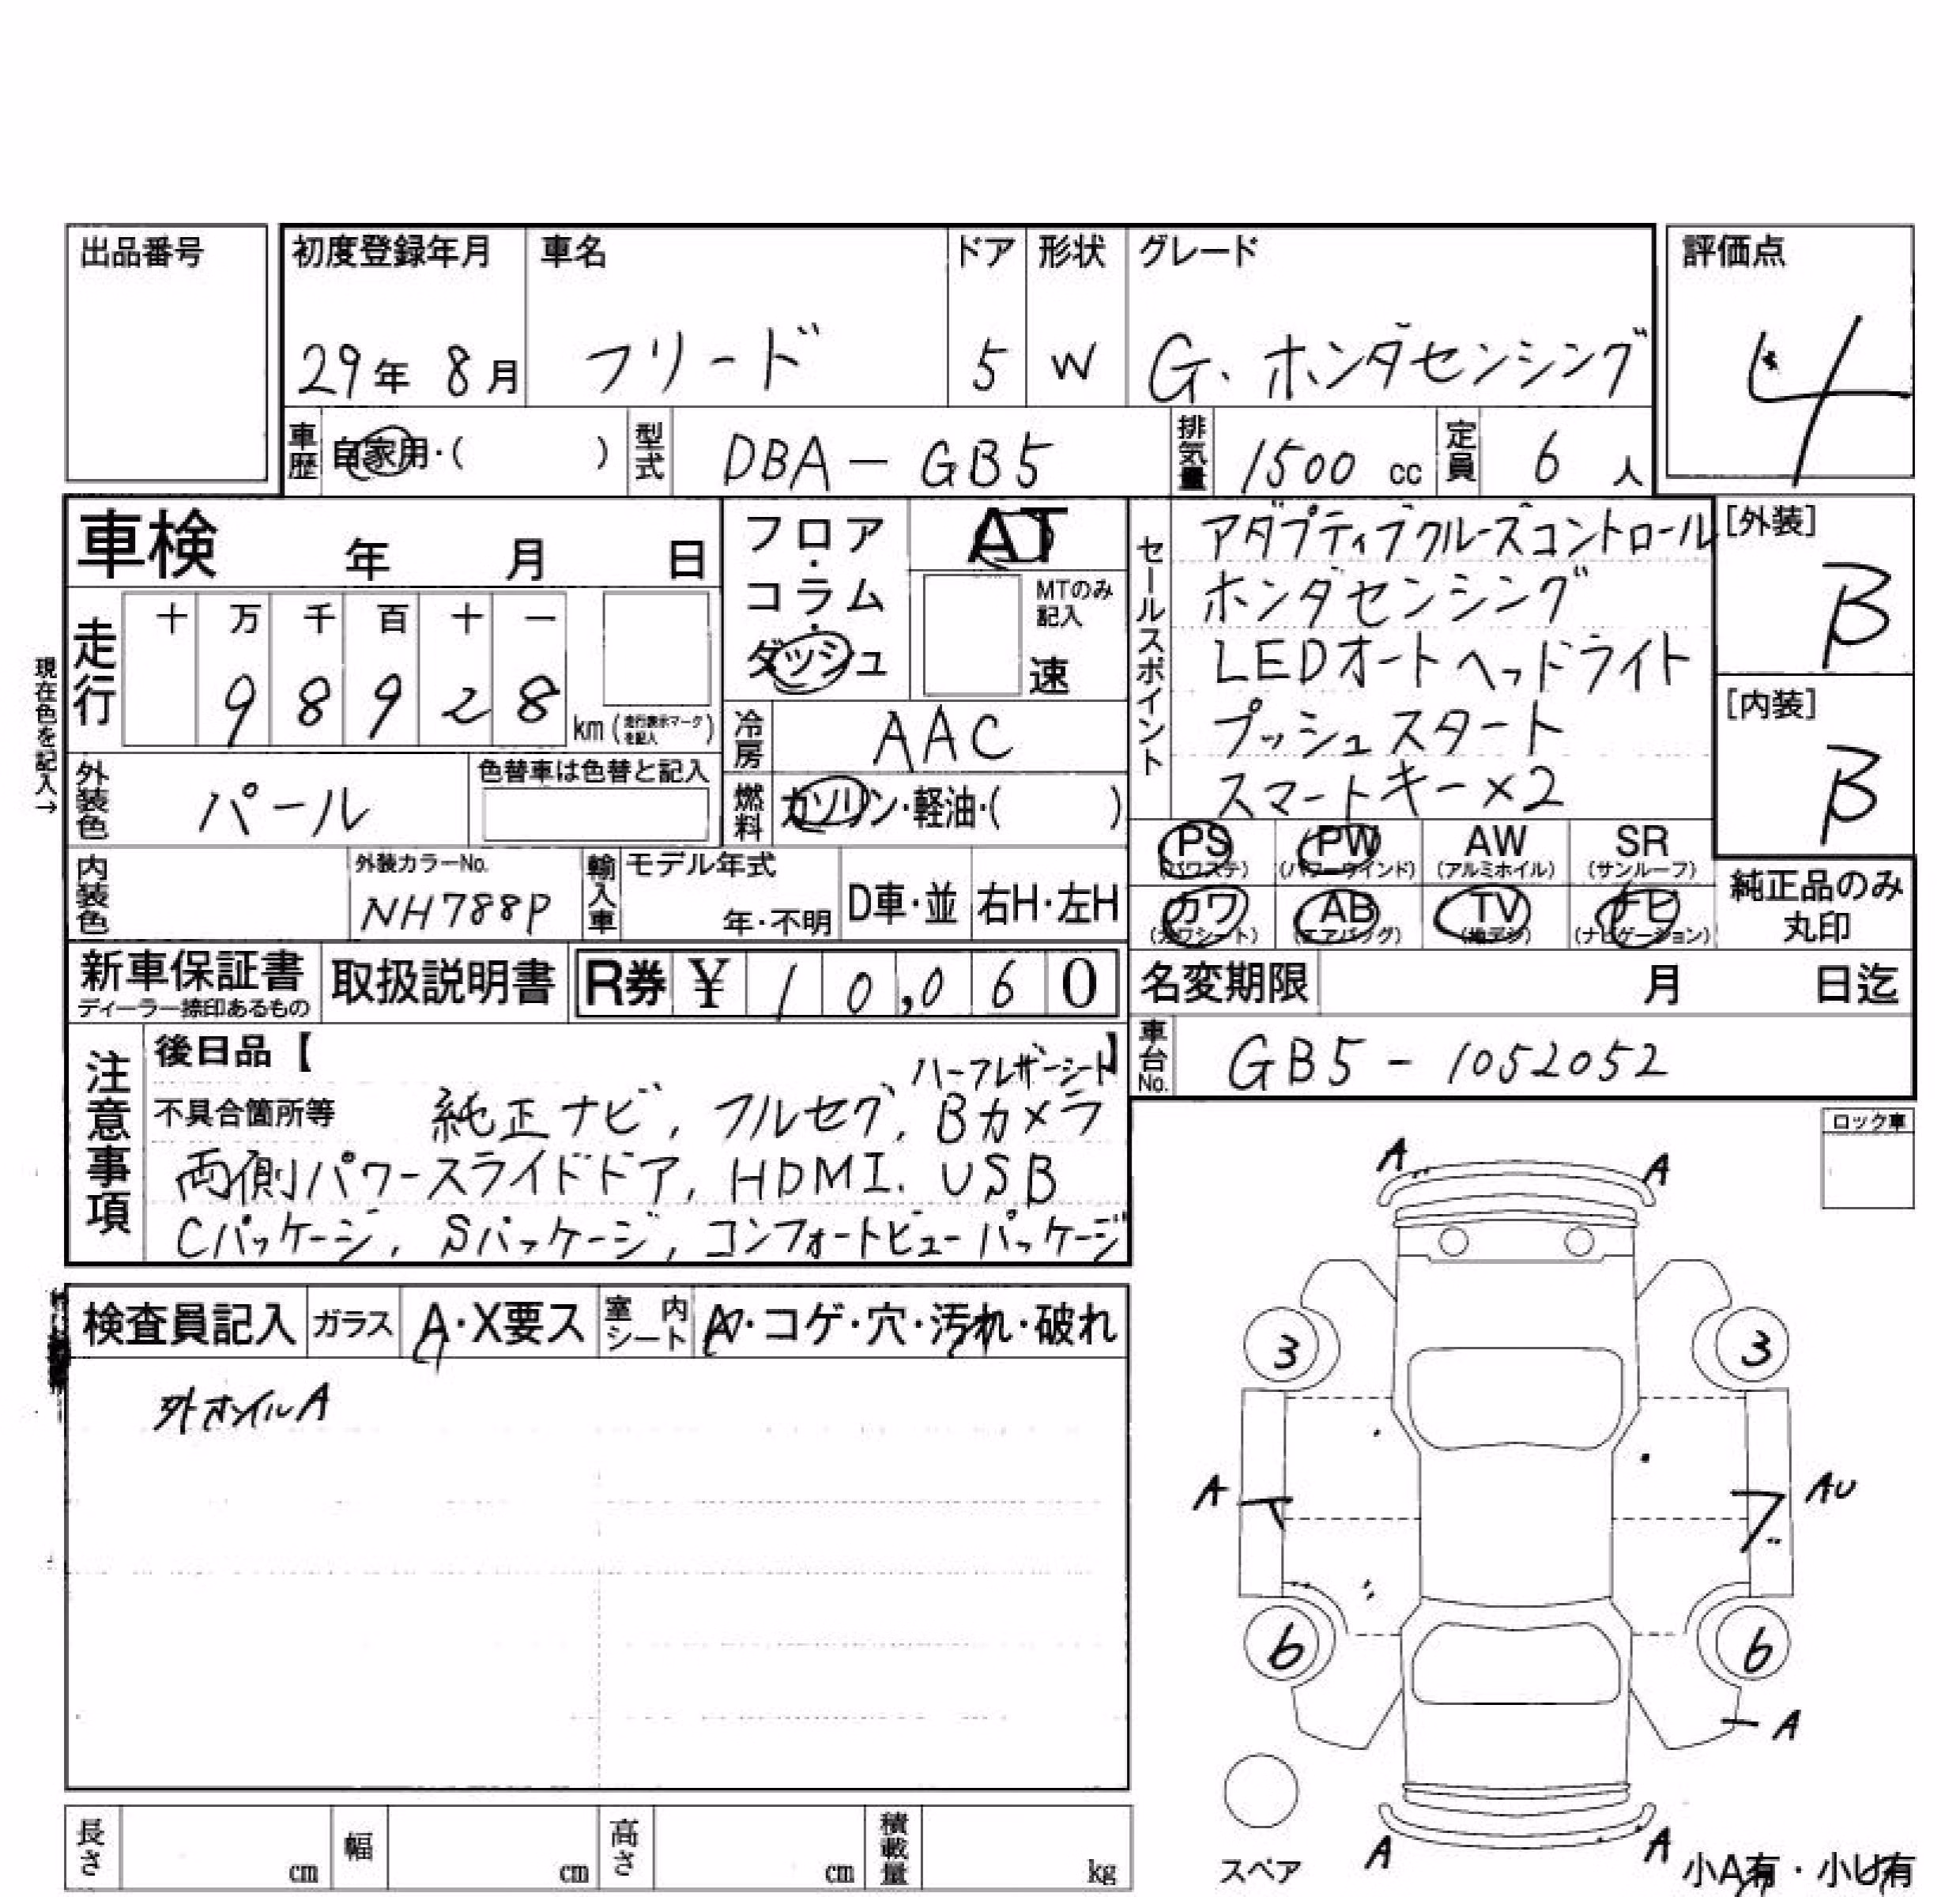 出品番号
初度登録年月 車名 ドア 形状 グレード 評価点
29年 8月 フリード 5 W G、ホンダセンシング 4
車歴 自家用・( ) 型式 DBA-GB5 排気量 1500 cc 定員 6 人
車検 年 月 日
フロア・コラム・ダッシュ
AT
MTのみ記入
速
セールスポイント
アダプティブクルーズコントロール
ホンダセンシング
LEDオートヘッドライト
プッシュスタート
スマートキー×2
[外装]
B
[内装]
B
現在色を記入→
走行 十 万 千 百 十 一
9 8 9 2 8 km (走行表示マークを記入)
冷房 AAC
外装色 パール 色替車は色替と記入
燃料 ガソリン・軽油・( )
PS (パワステ) PW (パワーウインド) AW (アルミホイル) SR (サンルーフ)
カワ (カワシート) AB (エアバッグ) TV (地デジ) ナビ (ナビゲーション)
純正品のみ丸印
内装色 外装カラーNo. NH788P 輸入車 モデル年式 年・不明 D車・並 右H・左H
新車保証書 ディーラー捺印あるもの 取扱説明書 R券 ¥ 10,060
名変期限 月 日迄
車台No. GB5-1052052
注意事項
後日品【 】
ハーフレザーシート
不具合箇所等 純正ナビ, フルセグ, Bカメラ
両側パワースライドドア, HDMI. USB
Cパッケージ, Sパッケージ, コンフォートビューパッケージ
ロック車
検査員記入 ガラス A・X要ス 室内シート A・コゲ・穴・汚れ・破れ
外ホイルA
A A
3 3
A AU
6 6
A
A A
スペア
小A有・小U有
長さ cm 幅 cm 高さ cm 積載量 kg